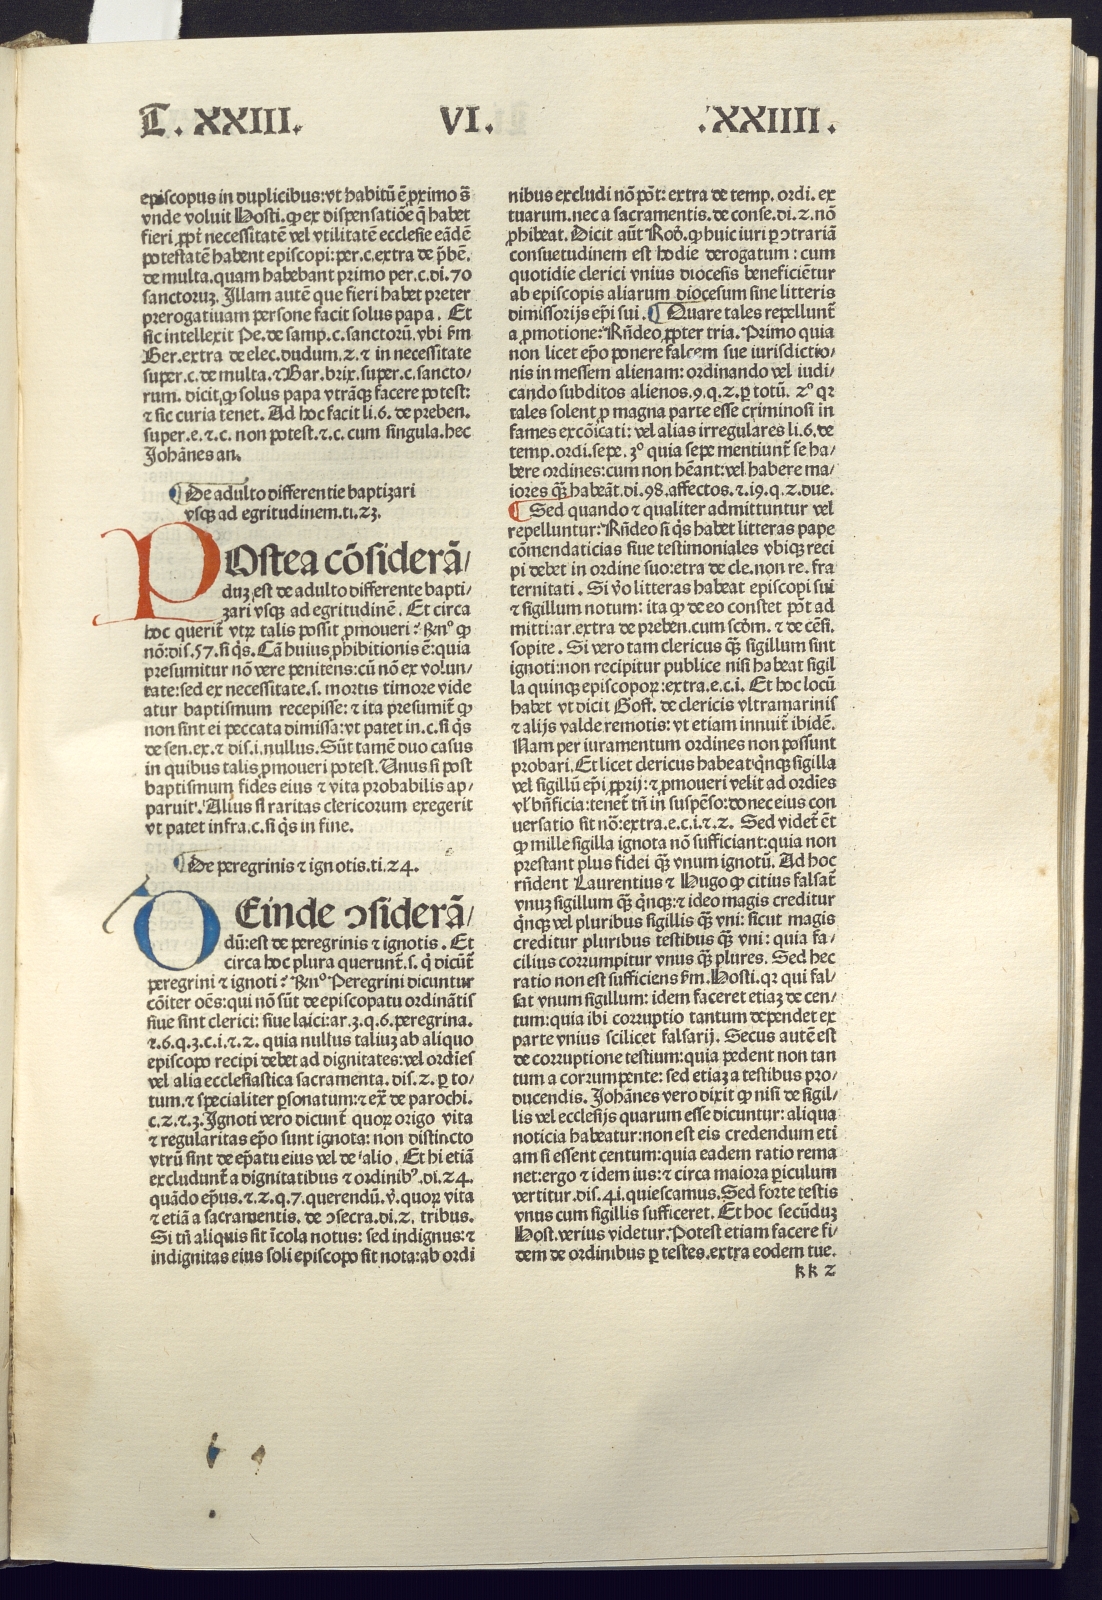 T. XXIII. VI. .XXIIII.
episcopus in duplicibus:vt habitū ē ꝓximo §
vnde voluit Hosti.ꝙ ex dispensatiōe q̄ habet
fieri ꝓpt̄ necessitatē vel vtilitatē ecclesie eādē
potestatē habent episcopi:per.c.extra de p̄bē.
de multa.quam habebant primo per.c.di.70
sanctoruꝫ. Illam autē que fieri habet preter
prerogatiuam persone facit solus papa. Et
sic intellexit Pe.de samp.c.sanctorū.vbi ẜm
Ber.extra de elec.dudum.2.⁊ in necessitate
super.c.de multa.⁊Bar.brix.super.c.sancto/
rum. dicit,ꝙ solus papa vtrāqꝫ facere potest:
⁊ sic curia tenet. Ad hoc facit li.6. de preben.
super.e.⁊.c. non potest.⁊.c. cum singula.hec
Johānes an.
De adulto differentie baptizari
vsqꝫ ad egritudinem.ti.23.
POstea cōsiderā/
duꝫ est de adulto differente bapti/
zari vsqꝫ ad egritudinē. Et circa
hoc querit̄ vtꝝ talis possit ꝓmoueri? Rn̄º ꝙ
nō:dis.57.si q̄s. Cā huius ꝓhibitionis ē:quia
presumitur nō vere penitens:cū nō ex volun/
tate:sed ex necessitate.s. mortis timore vide
atur baptismum recepisse: ⁊ ita presumit̄ ꝙ
non sint ei peccata dimissa:vt patet in.c.si q̄s
de sen.ex.⁊ dis.i.nullus. Sūt tamē duo casus
in quibus talis ꝓmoueri potest. Unus si post
baptismum fides eius ⁊ vita probabilis ap/
paruit. Alius si raritas clericorum exegerit
vt patet infra.c.si q̄s in fine.
De peregrinis ⁊ ignotis.ti.24.
DEinde ↄsiderā/
dū:est de peregrinis ⁊ ignotis. Et
circa hoc plura querunt̄.s. q̄ dicūt̄
peregrini ⁊ ignoti? Rn̄º Peregrini dicuntur
cōiter oēs:qui nō sūt de episcopatu ordinātis
siue sint clerici: siue laici:ar.3.q.6.peregrina.
⁊.6.q.3.c.i.⁊.2. quia nullus taliuꝫ ab aliquo
episcopo recipi debet ad dignitates:vel ordīes
vel alia ecclesiastica sacramenta. dis.2. ꝑ to/
tum.⁊ specialiter ꝑsonatum:⁊ ex̄ de parochi.
c.2.⁊.3.Ignoti vero dicunt̄ quoꝝ origo vita
⁊ regularitas ep̄o sunt ignota: non distincto
vtrū sint de ep̄atu eius vel de alio. Et hi etiā
excludunt̄ a dignitatibus ⁊ ordinibꝰ.di.24.
quādo ep̄us.⁊.2.q.7.querendū.v̄.quoꝝ vita
⁊ etiā a sacramentis. de ↄsecra.di.2. tribus.
Si tn̄ aliquis sit īcola notus: sed indignus:⁊
indignitas eius soli episcopo sit nota:ab ordi
nibus excludi nō pōt̄: extra de temp. ordi. ex
tuarum.nec a sacramentis.de conse.di.2.nō
ꝓhibeat. Dicit aūt Rod̄.ꝙ huic iuri ꝑ ↄtrariā
consuetudinem est hodie derogatum: cum
quotidie clerici vnius diocesis beneficiētur
ab episcopis aliarum diocesum sine litteris
dimissorijs ep̄i sui. Quare tales repellunt̄
a ꝓmotione: Rn̄deo ꝓpter tria. Primo quia
non licet ep̄o ponere falcem sue iurisdictio/
nis in messem alienam: ordinando vel iudi/
cando subditos alienos.9.q.2.ꝑ totū. 2º qꝛ
tales solent ꝓ magna parte esse criminosi in
fames excōicati: vel alias irregulares li.6.de
temp.ordi.sepe. 3º quia sepe mentiunt̄ se ha/
bere ordines:cum non hēant:vel habere ma/
iores qꝫ̄ habeāt.di.98.affectos.⁊.19.q.2.due.
Sed quando ⁊ qualiter admittuntur vel
repelluntur: Rn̄deo si q̄s habet litteras pape
cōmendaticias siue testimoniales vbiqꝫ reci
pi debet in ordine suo:etra de cle.non re. fra
ternitati. Si v̄o litteras habeat episcopi sui
⁊ sigillum notum: ita ꝙ de eo constet pōt ad
mitti:ar.extra de preben.cum scd̄m. ⁊ de cēsi.
sopite. Si vero tam clericus qꝫ̄ sigillum sint
ignoti:non recipitur publice nisi habeat sigil
la quinqꝫ episcopoꝝ:extra.e.c.i. Et hoc locū
habet vt dicit Goff. de clericis vltramarinis
⁊ alijs valde remotis: vt etiam innuit̄ ibidē.
Nam per iuramentum ordines non possunt
probari. Et licet clericus habeat q̄nqꝫ sigilla
vel sigillū ep̄i ꝓprij: ⁊ ꝓmoueri velit ad ordīes
vl̓ bn̄ficia:tenet̄ tn̄ in suspēso:donec eius con
uersatio sit nō:extra.e.c.i.⁊.2. Sed videt̄ ēt
ꝙ mille sigilla ignota nō sufficiant:quia non
prestant plus fidei qꝫ̄ vnum ignotū. Ad hoc
rn̄dent Laurentius ⁊ Hugo ꝙ citius falsat̄
vnuꝫ sigillum qꝫ̄ q̄nqꝫ:⁊ ideo magis creditur
q̄nqꝫ vel pluribus sigillis qꝫ̄ vni: sicut magis
creditur pluribus testibus qꝫ̄ vni: quia fa/
cilius corrumpitur vnus qꝫ̄ plures. Sed hec
ratio non est sufficiens ẜm.Hosti.qꝛ qui fal/
sat vnum sigillum: idem faceret etiaꝫ de cen/
tum:quia ibi corruptio tantum dependet ex
parte vnius scilicet falsarij. Secus autē est
de corruptione testium:quia pedent non tan
tum a corrumpente: sed etiaꝫ a testibus pro/
ducendis. Johānes vero dixit ꝙ nisi de sigil/
lis vel ecclesijs quarum esse dicuntur: aliqua
noticia habeatur:non est eis credendum eti
am si essent centum:quia eadem ratio rema
net:ergo ⁊ idem ius:⁊ circa maiora ꝑiculum
vertitur.dis.4i.quiescamus.Sed forte testis
vnus cum sigillis sufficeret. Et hoc secūduꝫ
Host.verius videtur. Potest etiam facere fi/
dem de ordinibus ꝑ testes.extra eodem tue.
kk 2